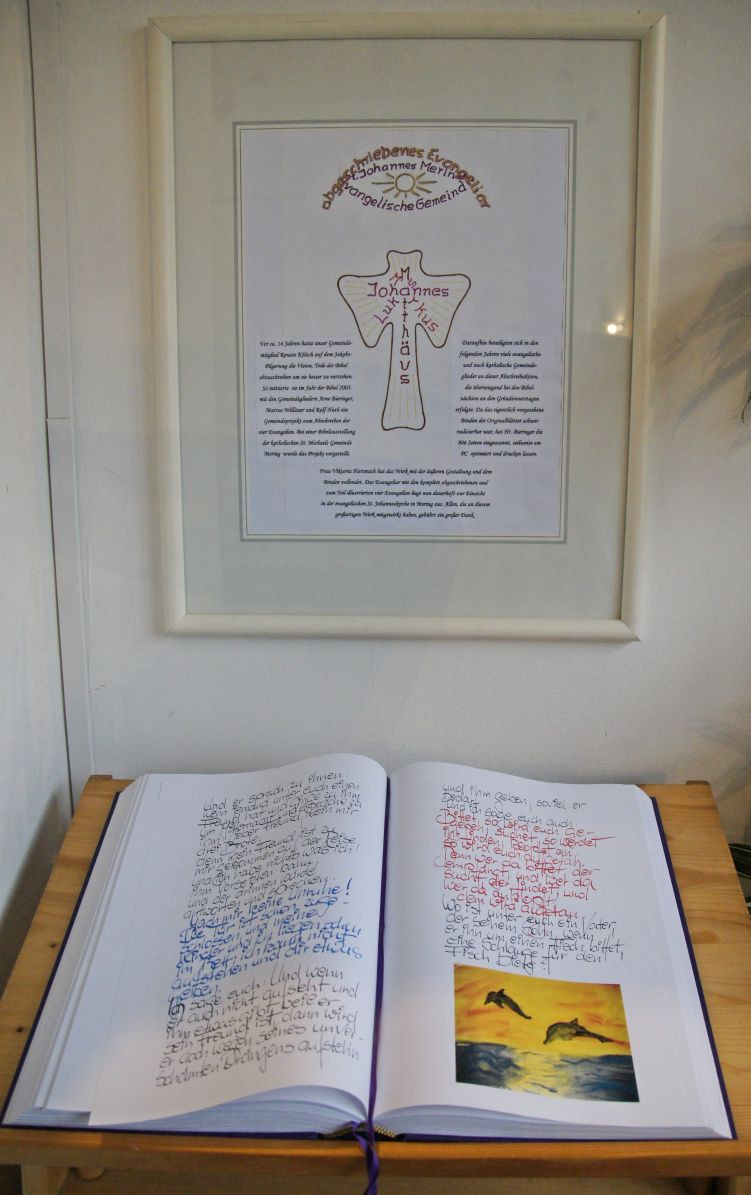 abgeschriebenes Evangeliar
St. Johannes Mering
Evangelische Gemeinde
Johannes
Matthäus
Lukas
Markus
Vor ca. 14 Jahren hatte unser Gemeinde-
mitglied Renate Kölsch auf dem Jakobs-
Pilgerweg die Vision, Teile der Bibel
abzuschreiben um sie besser zu verstehen.
So initiierte sie im Jahr der Bibel 2003
mit den Gemeindegliedern Arne Bieringer,
Marcus Willauer und Rolf Huth ein
Gemeindeprojekt zum Abschreiben der
vier Evangelien. Bei einer Bibelausstellung
der katholischen St. Michaels Gemeinde
Mering wurde das Projekt vorgestellt.
Daraufhin beteiligten sich in den
folgenden Jahren viele evangelische
und auch katholische Gemeinde-
glieder an dieser Abschreibaktion,
die überwiegend bei den Bibel-
nächten an den Gründonnerstagen
erfolgte. Da das eigentlich vorgesehene
Binden der Originalblätter schwer
realisierbar war, hat Hr. Bieringer die
806 Seiten eingescannt, teilweise am
PC optimiert und drucken lassen.
Frau Viktoria Hartmuth hat das Werk mit der äußeren Gestaltung und dem
Binden vollendet. Das Evangeliar mit den komplett abgeschriebenen und
zum Teil illustrierten vier Evangelien liegt nun dauerhaft zur Einsicht
in der evangelischen St. Johanneskirche in Mering aus. Allen, die an diesem
großartigen Werk mitgewirkt haben, gebührt ein großer Dank.
Und er sprach zu ihnen:
Wenn jemand unter euch einen
Freund hat und ginge zu ihm
um Mitternacht und spräche zu
ihm: Lieber Freund, leih mir
drei Brote;
denn mein Freund ist
zu mir gekommen auf der Reise,
und ich habe nichts, was ich
ihm vorsetzen kann,
und der drinnen würde
antworten und sprechen:
Mach mir keine Unruhe!
Die Tür ist schon zuge-
schlossen und meine
Kinder und ich liegen schon
im Bett; ich kann nicht
aufstehen und dir etwas
geben.
Ich sage euch: Und wenn
er auch nicht aufsteht und
ihm etwas gibt, weil er
sein Freund ist, dann wird
er doch wegen seines unver-
schämten Drängens aufstehn
und ihm geben, soviel er
bedarf.
Und ich sage euch auch:
Bittet, so wird euch ge-
geben; suchet, so werdet
ihr finden; klopfet an,
so wird euch aufgetan.
Denn wer da bittet, der
empfängt; und wer da
sucht, der findet; und
wer da anklopft,
dem wird aufgetan.
Wo ist unter euch ein Vater,
der seinem Sohn, wenn
er ihn um einen Fisch bittet,
eine Schlange für den
Fisch biete?